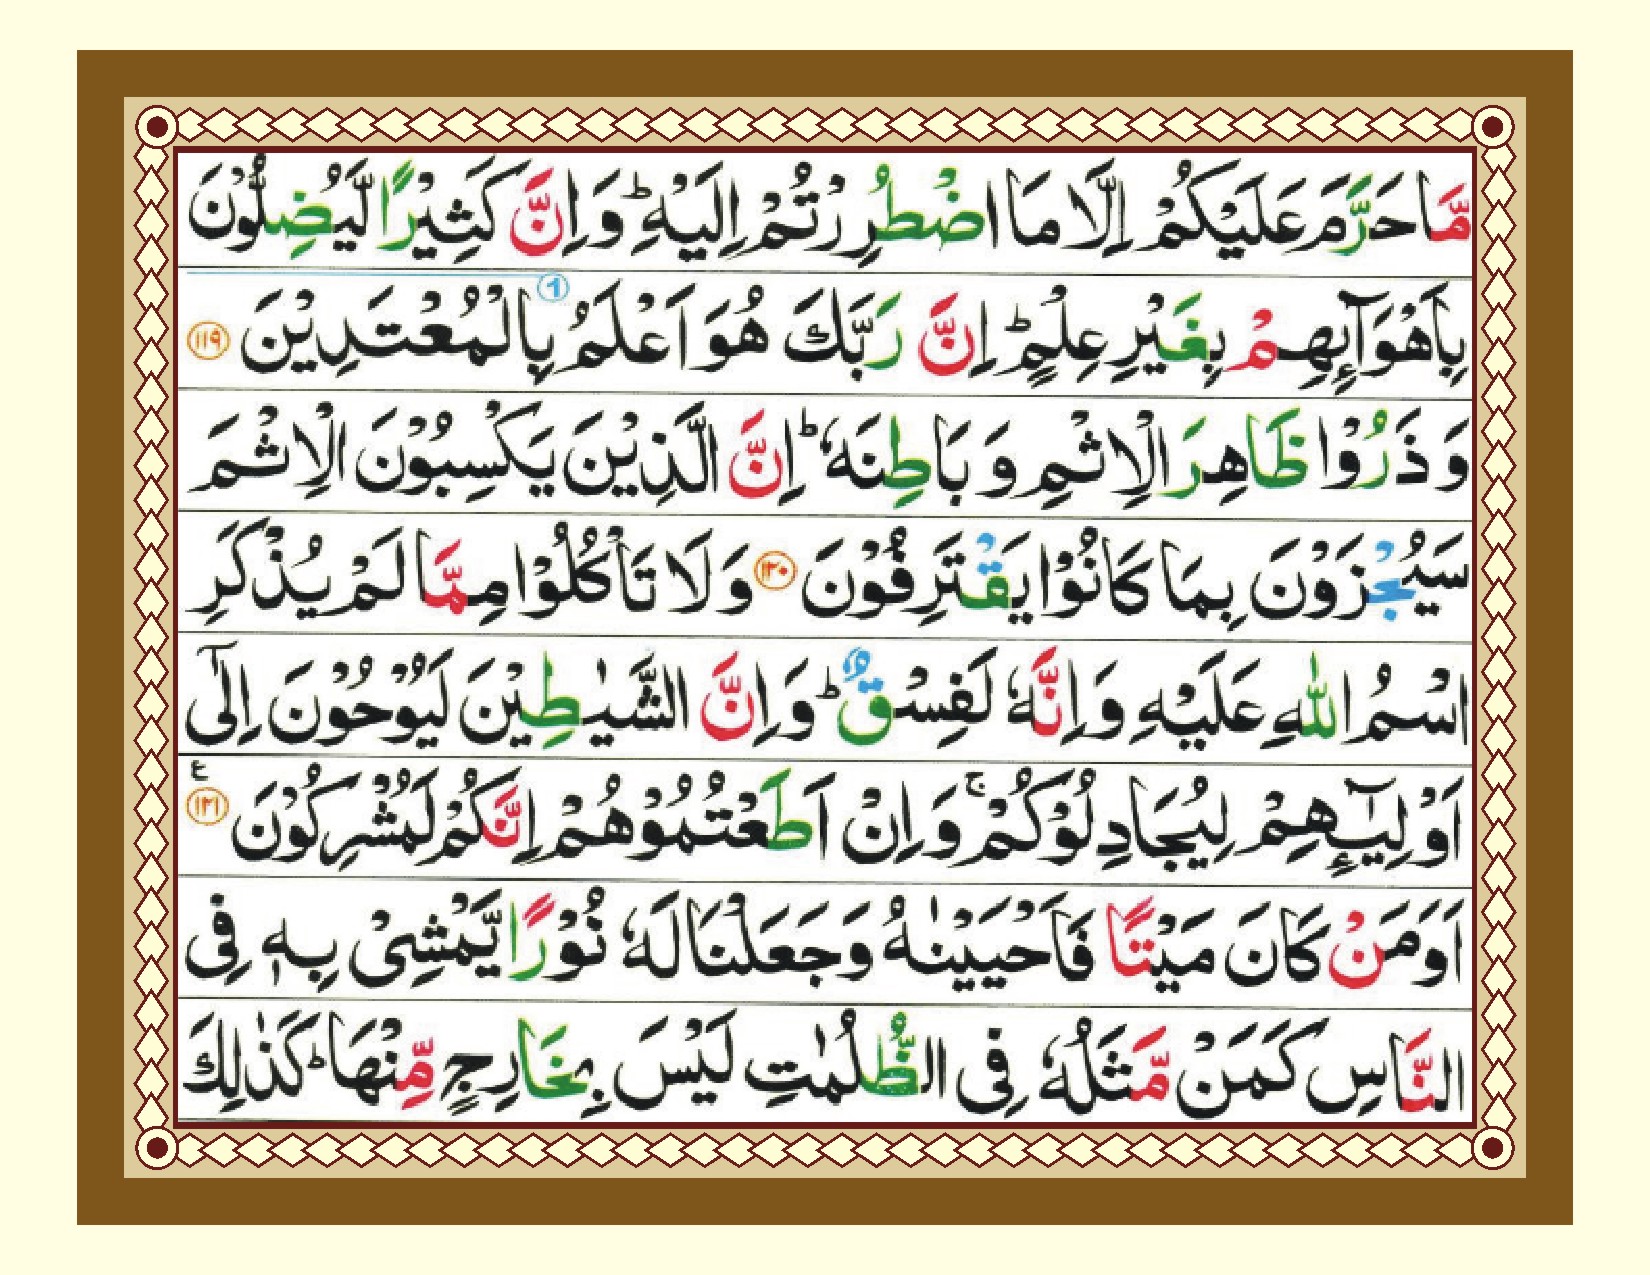 مَّا حَرَّمَ عَلَيْكُمْ اِلَّا مَا اضْطُرِرْتُمْ اِلَيْهِ ؕ وَ اِنَّ كَثِيْرًا لَّيُضِلُّوْنَ
بِاَهْوَآىِٕهِمْ بِغَيْرِ عِلْمٍ ؕ اِنَّ رَبَّكَ هُوَ اَعْلَمُ بِالْمُعْتَدِيْنَ ① ۱۱۹
وَ ذَرُوْا ظَاهِرَ الْاِثْمِ وَ بَاطِنَهٗ ؕ اِنَّ الَّذِيْنَ يَكْسِبُوْنَ الْاِثْمَ
سَيُجْزَوْنَ بِمَا كَانُوْا يَقْتَرِفُوْنَ ۱۲۰ وَ لَا تَاْكُلُوْا مِمَّا لَمْ يُذْكَرِ
اسْمُ اللّٰهِ عَلَيْهِ وَ اِنَّهٗ لَفِسْقٌ ؕ وَ اِنَّ الشَّيٰطِيْنَ لَيُوْحُوْنَ اِلٰٓى
اَوْلِيٰٓـِٕهِمْ لِيُجَادِلُوْكُمْ ۚ وَ اِنْ اَطَعْتُمُوْهُمْ اِنَّكُمْ لَمُشْرِكُوْنَ ۱۲۱ ع
اَوَ مَنْ كَانَ مَيْتًا فَاَحْيَيْنٰهُ وَ جَعَلْنَا لَهٗ نُوْرًا يَّمْشِيْ بِهٖ فِي
النَّاسِ كَمَنْ مَّثَلُهٗ فِي الظُّلُمٰتِ لَيْسَ بِخَارِجٍ مِّنْهَا ؕ كَذٰلِكَ